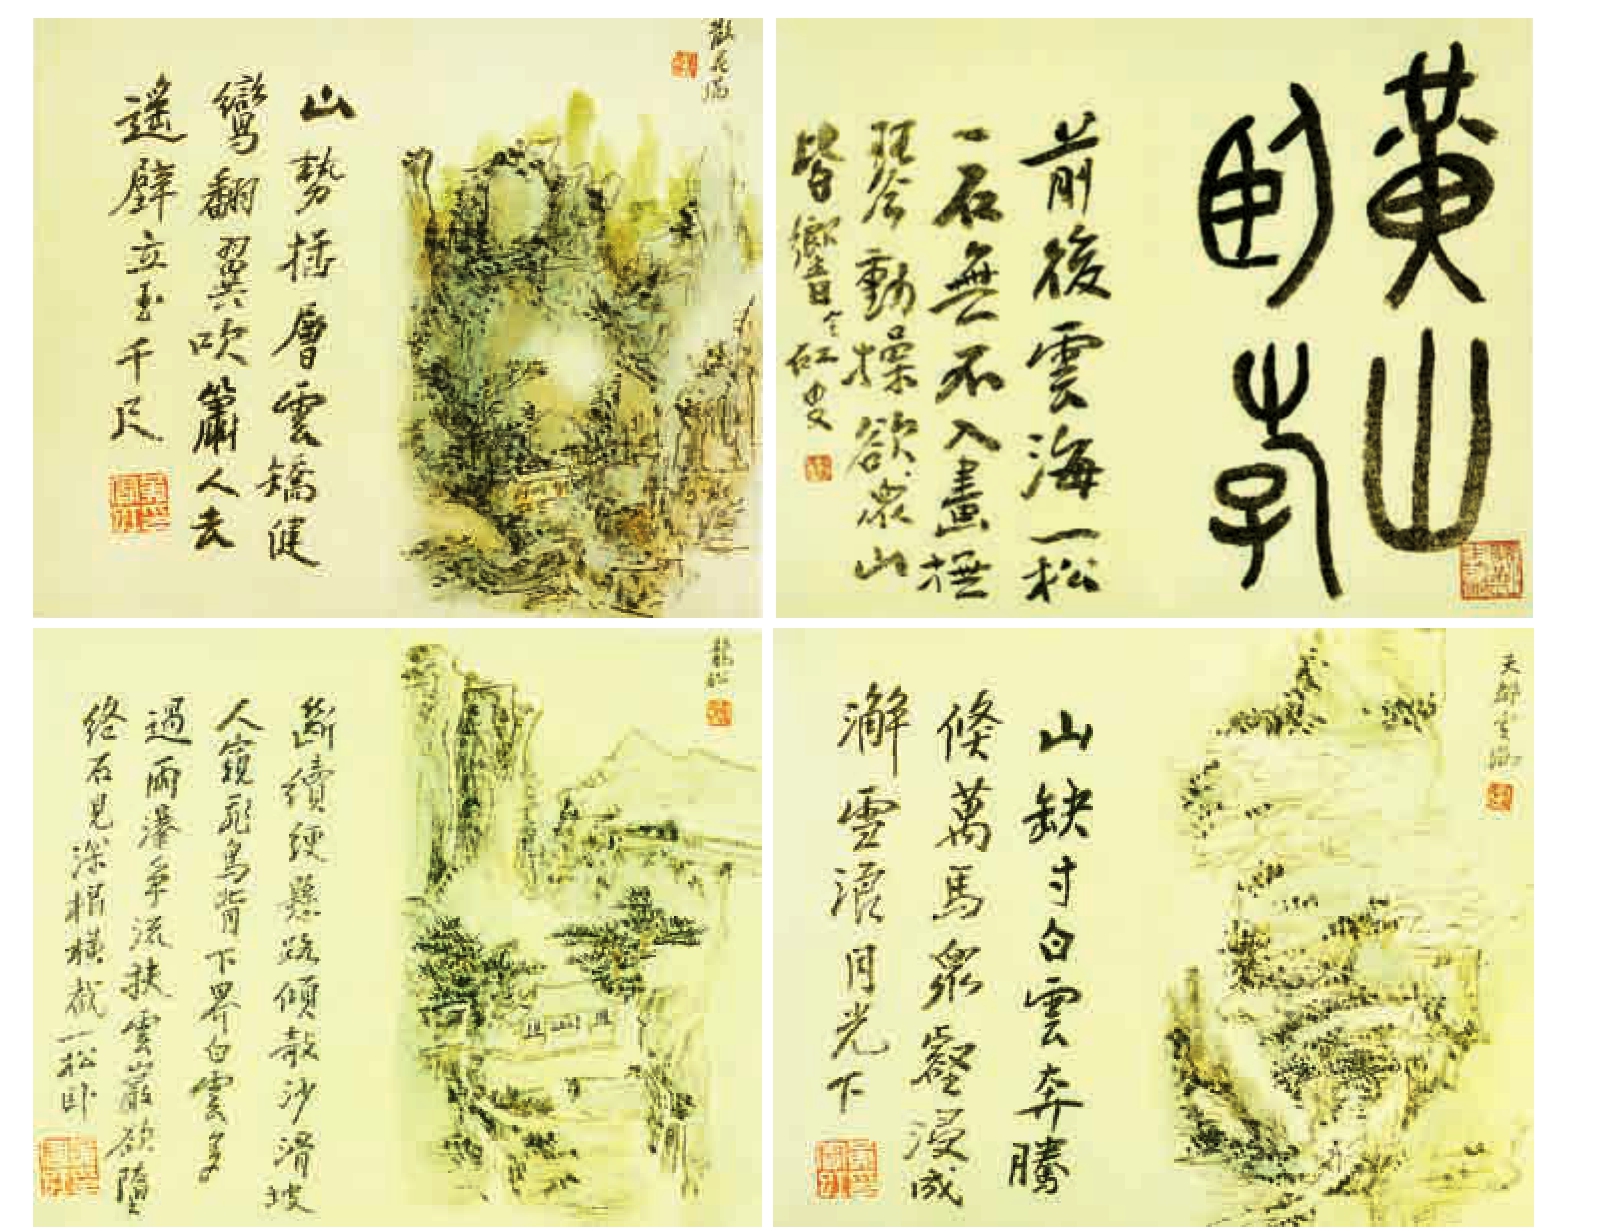 黃山
臥游
前後雲海一松
一石無不入畫撫
琴動操欲眾山
皆響令虹叟
散花塢
山勢插層雲矯健
鸞翻翼吹簫人去
遙壁立玉千尺
天都雲海
山缺寸白雲奔騰
倏萬馬眾壑浸成
澥雪浪月光下
龍松
斷續綆懸路傾欹沙滑坡
人窺飛鳥背下界白雲多
過雨瀑爭流挾雲巖欲墮
絡石見深根橫截一松卧